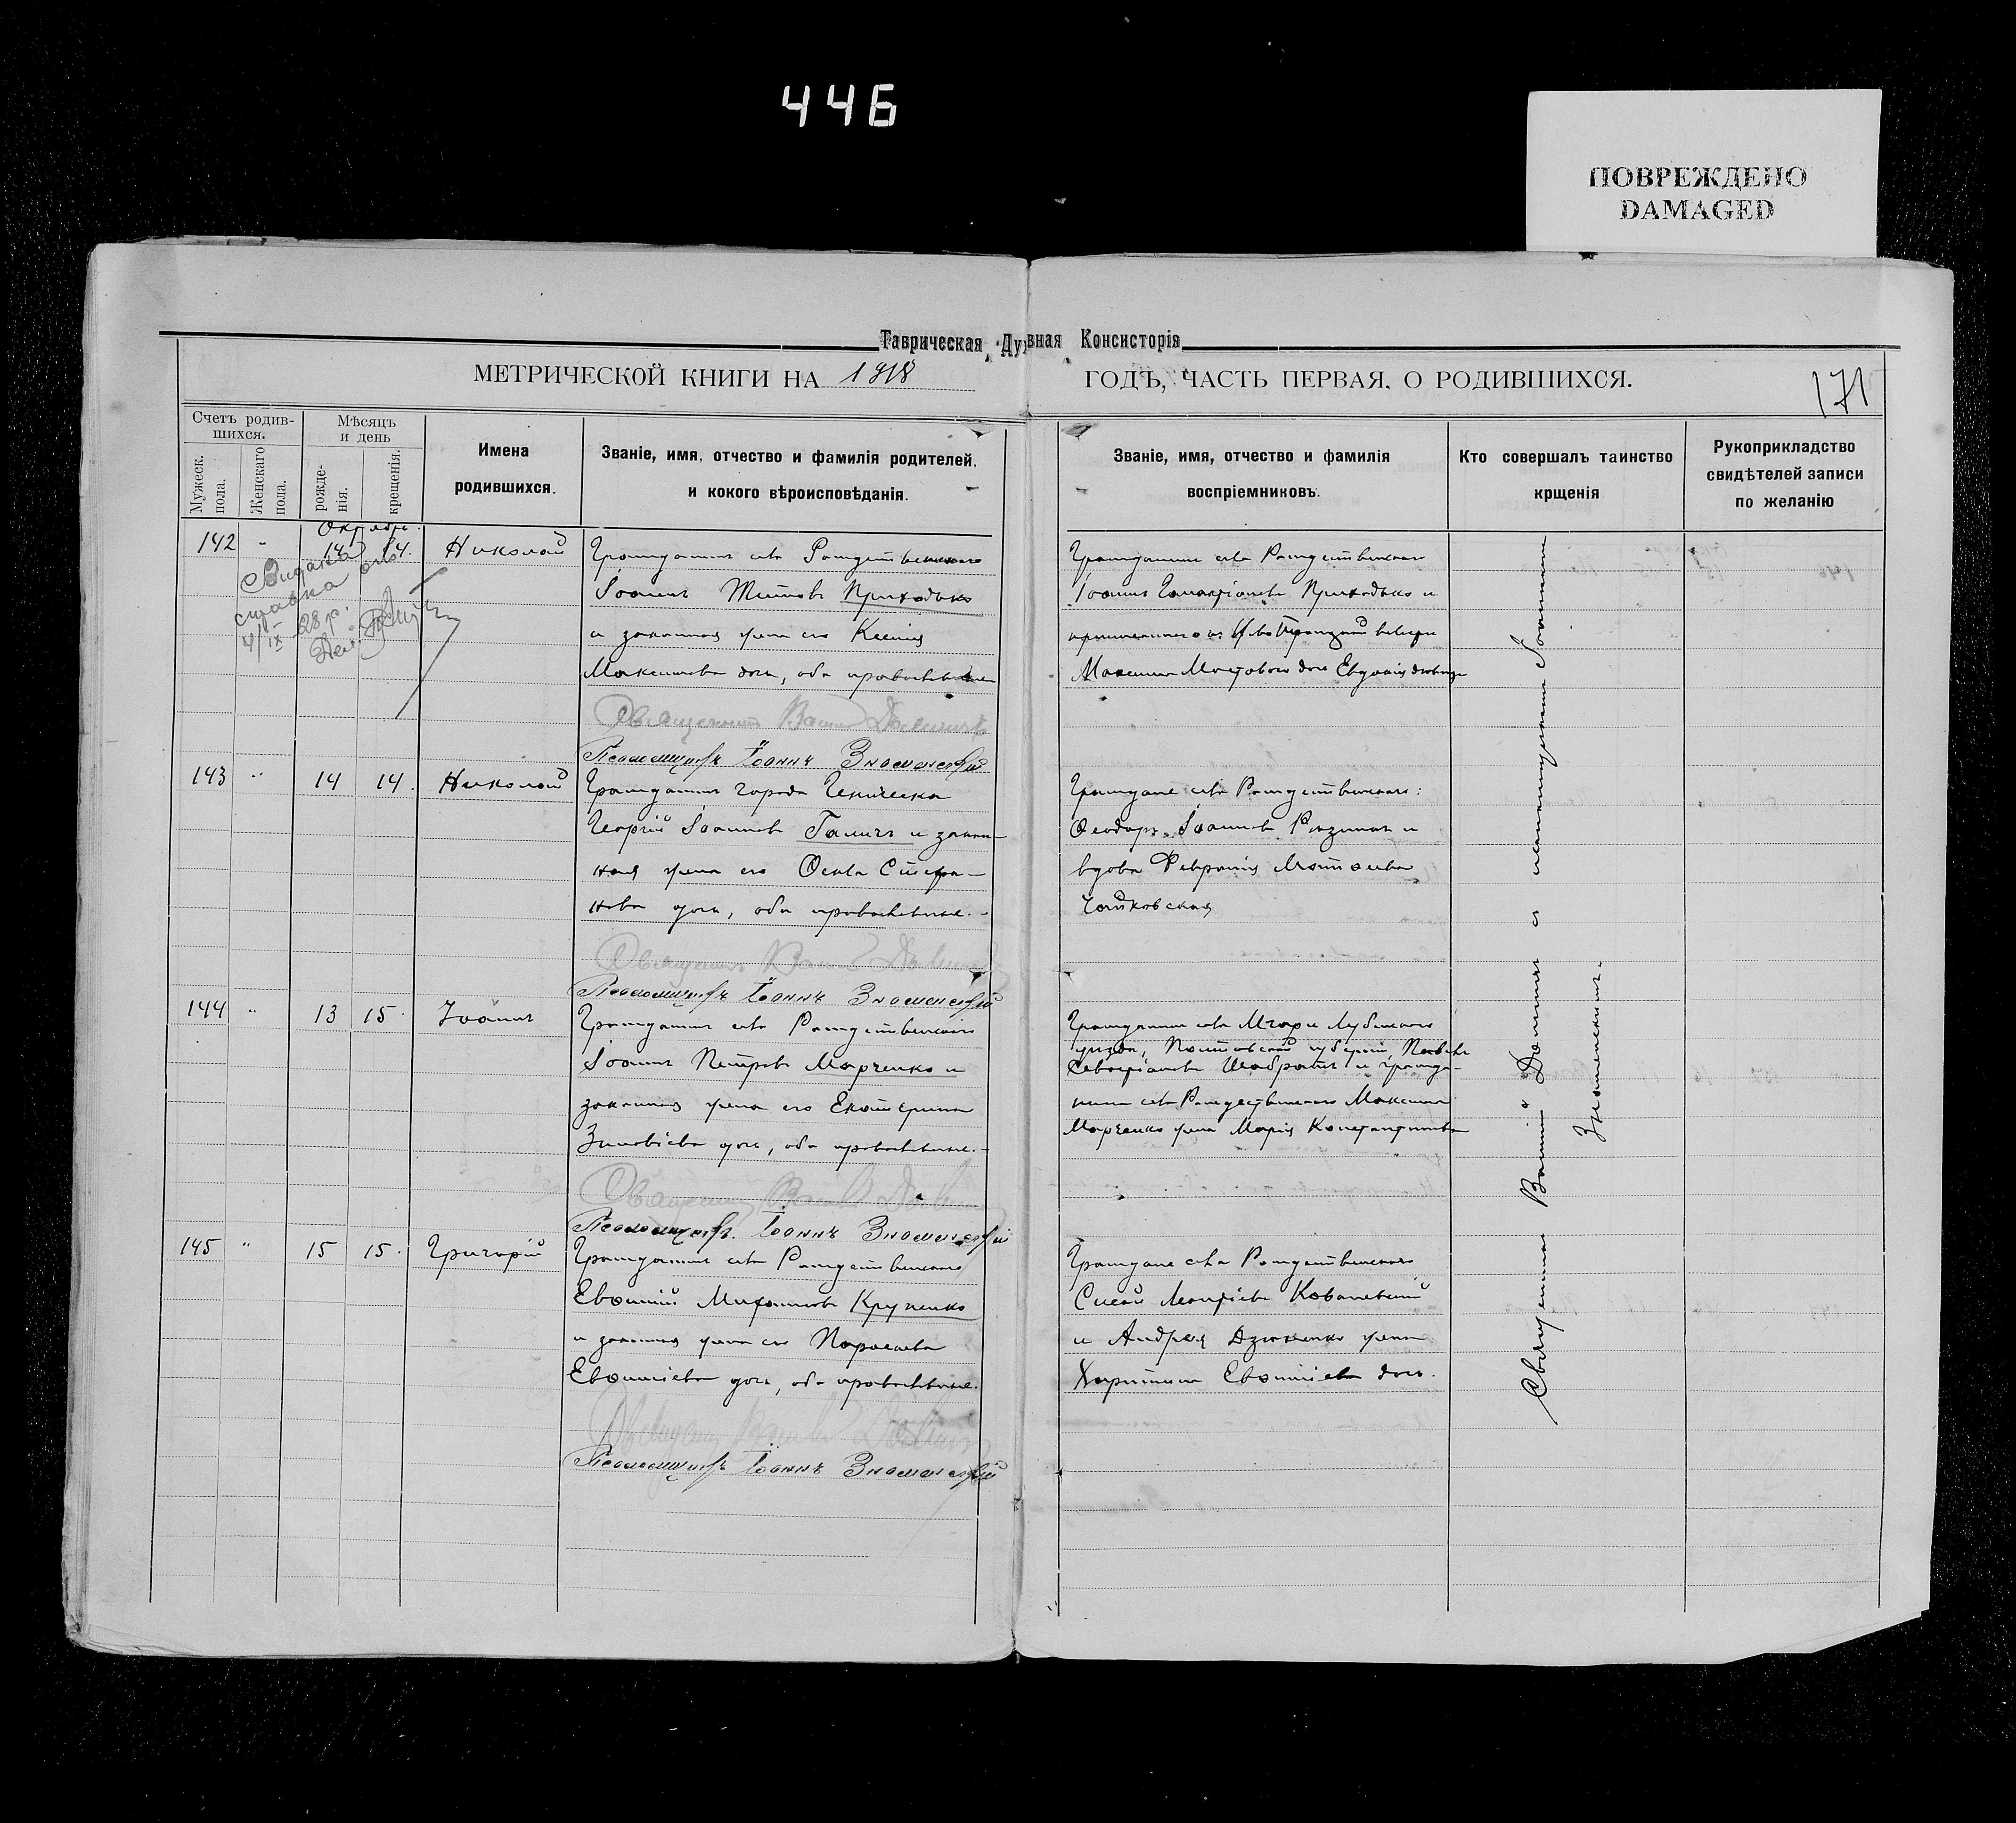 446
ПОВРЕЖДЕНО
DAMAGED
Таврическая Духовная Консисторія
МЕТРИЧЕСКОЙ КНИГИ НА 1918 ГОДЪ, ЧАСТЬ ПЕРВАЯ, О РОДИВШИХСЯ.
171
Счетъ родив-
шихся.
Мужеск.
пола.
Женскаго
пола.
Мѣсяцъ
и день
рожде-
нія.
крещенія.
Имена
родившихся.
Званіе, имя, отчество и фамилія родителей,
и кокого вѣроисповѣданія.
Званіе, имя, отчество и фамилія
воспріемниковъ.
Кто совершалъ таинство
крщенія
Рукоприкладство
свидѣтелей записи
по желанію
Октябрь
142 " 14 14. Николай
Гражданинъ села Рождественскаго
Іоаннъ Титовъ Приходько
и законная жена его Ксенія
Максимова дочь, оба православные
Священникъ
Псаломщикъ Іоаннъ Знаменскій
Гражданинъ села Рождественскаго
Іоаннъ Приходько и
Максима Мостового дочь Евдокія девица
Видана
справка
4/IX 28 р.
143 " 14 14. Николай
Гражданинъ города Геническа
Георгій Іоанновъ Галичъ и закон-
ная жена его Ѳекла Стефа-
нова дочь, оба православные.
Священникъ
Псаломщикъ Іоаннъ Знаменскій
Граждане села Рождественскаго:
Ѳеодоръ Іоанновъ и
вдова Февронія Матѳеева
Чайковская
144 " 13 15. Іоаннъ
Гражданинъ села Рождественскаго
Іоаннъ Петровъ Марченко и
законная жена его Екатерина
Зиновіева дочь, оба православные.
Священникъ
Псаломщикъ Іоаннъ Знаменскій
Гражданинъ села Мгари Лубенскаго
уѣзда, Полтавской губерніи, Павелъ
и гражда-
нина села Рождественскаго Максима
Марченко жена Марія Константинова
145 " 15 15. Григорій
Гражданинъ села Рождественскаго
Евѳимій Михаиловъ Крупенко
и законная жена его Параскева
Евѳиміева дочь, оба православные.
Священникъ
Псаломщикъ Іоаннъ Знаменскій
Граждане села Рождественскаго
Сисой Леонтіевъ Ковалевскій
и Андрея Дзюненко жена
Харитина Евѳиміева дочь.
Священникъ Василій и псаломщикомъ Іоанномъ
Знаменскимъ.